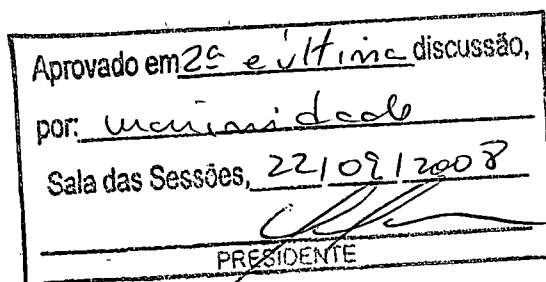 Aprovado em 2ª e última discussão,
por: unanimidade
Sala das Sessões, 22/09/2008
PRESIDENTE